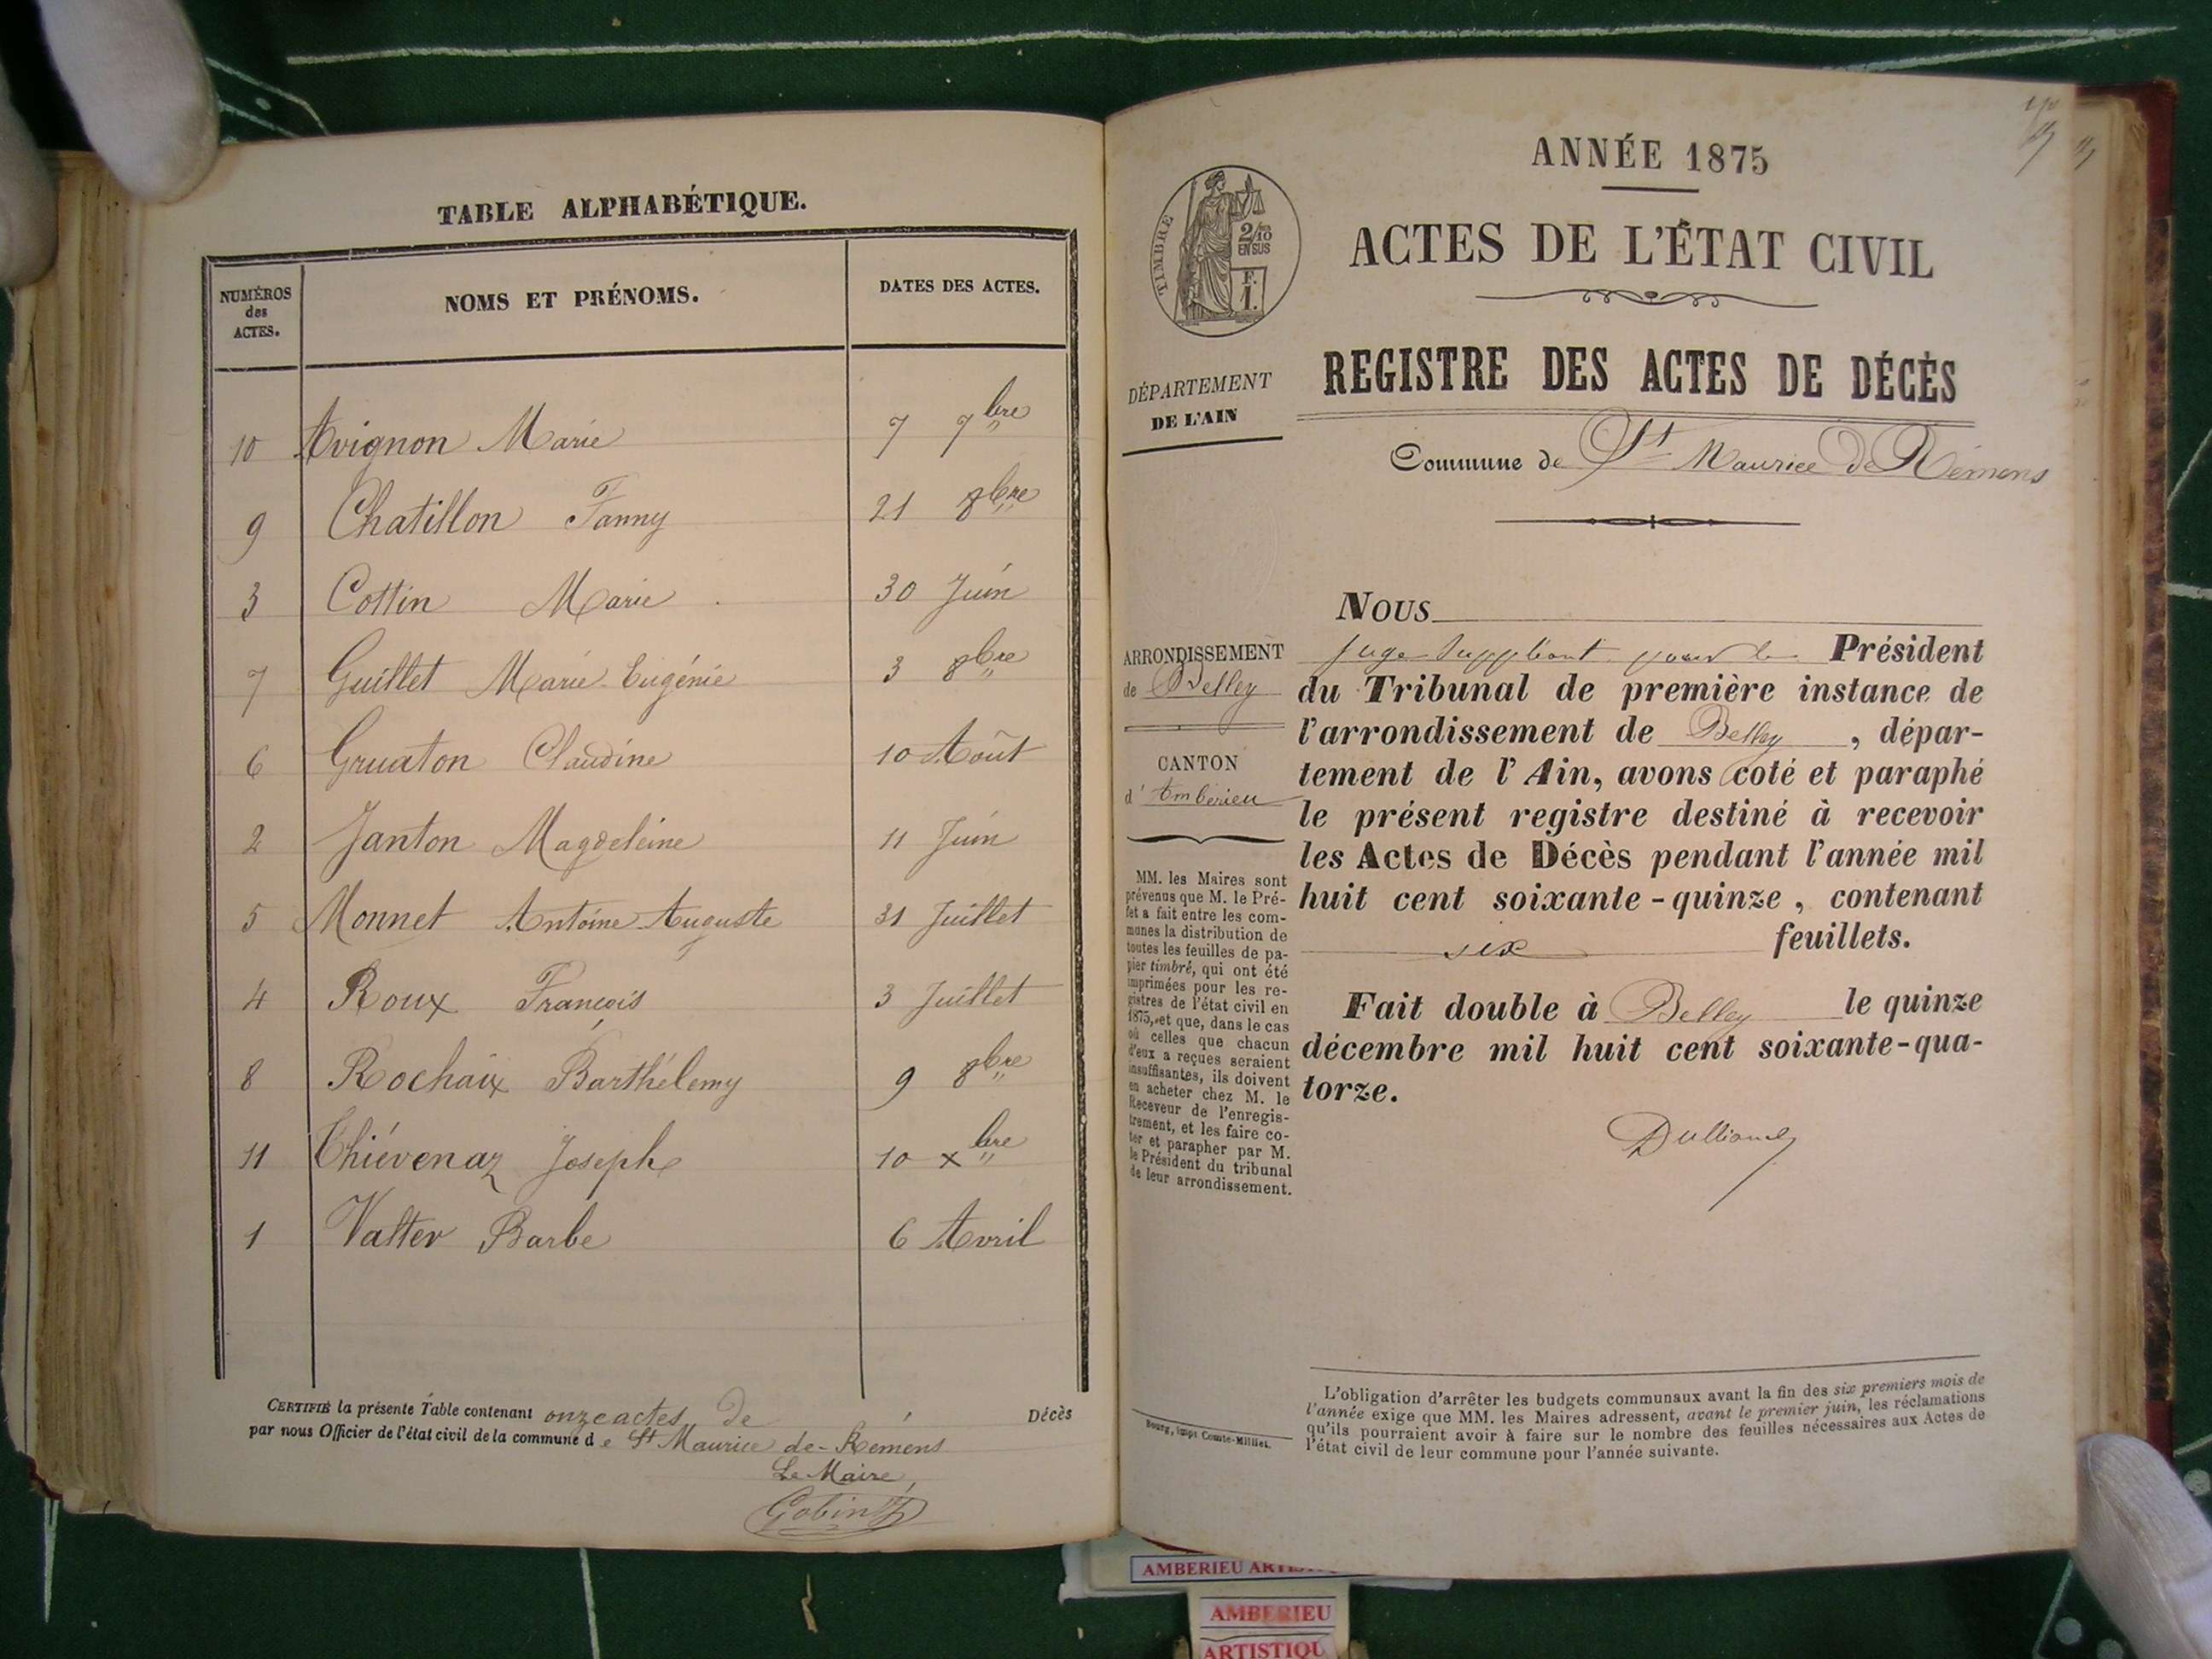 TABLE ALPHABÉTIQUE.
NUMÉROS des ACTES.
NOMS ET PRÉNOMS.
DATES DES ACTES.
10 Avignon Marie 7 9bre
9 Chatillon Fanny 21 8bre
3 Cottin Marie 30 Juin
7 Guillet Marie Eugénie 3 8bre
6 Gruaton Claudine 10 Août
2 Janton Magdeleine 11 Juin
5 Monnet Antoine Auguste 31 Juillet
4 Roux François 3 Juillet
8 Rochaix Barthélemy 9 8bre
11 Thiévenaz Joseph 10 xbre
1 Valter Barbe 6 Avril
CERTIFIÉ la présente Table contenant onze actes de Décès
par nous Officier de l'état civil de la commune de St Maurice de-Rémens
Le Maire,
Gobin
ANNÉE 1875
TIMBRE
2/10
EN SUS
F.
1.
ACTES DE L'ÉTAT CIVIL
REGISTRE DES ACTES DE DÉCÈS
DÉPARTEMENT
DE L'AIN
Commune de St Maurice de Rémens
ARRONDISSEMENT
de Belley
CANTON
d'Ambérieu
MM. les Maires sont
prévenus que M. le Pré-
fet a fait entre les com-
munes la distribution de
toutes les feuilles de pa-
pier timbré, qui ont été
imprimées pour les re-
gistres de l'état civil en
1875, et que, dans le cas
où celles que chacun
d'eux a reçues seraient
insuffisantes, ils doivent
en acheter chez M. le
Receveur de l'enregis-
trement, et les faire co-
ter et parapher par M.
le Président du tribunal
de leur arrondissement.
NOUS
Juge Suppléant pour le Président
du Tribunal de première instance de
l'arrondissement de Belley, dépar-
tement de l'Ain, avons coté et paraphé
le présent registre destiné à recevoir
les Actes de Décès pendant l'année mil
huit cent soixante-quinze, contenant
six feuillets.
Fait double à Belley le quinze
décembre mil huit cent soixante-qua-
torze.
Bourg, impr Comte-Milliet.
L'obligation d'arrêter les budgets communaux avant la fin des six premiers mois de
l'année exige que MM. les Maires adressent, avant le premier juin, les réclamations
qu'ils pourraient avoir à faire sur le nombre des feuilles nécessaires aux Actes de
l'état civil de leur commune pour l'année suivante.
AMBERIEU
AMBERIEU
ARTISTIQU